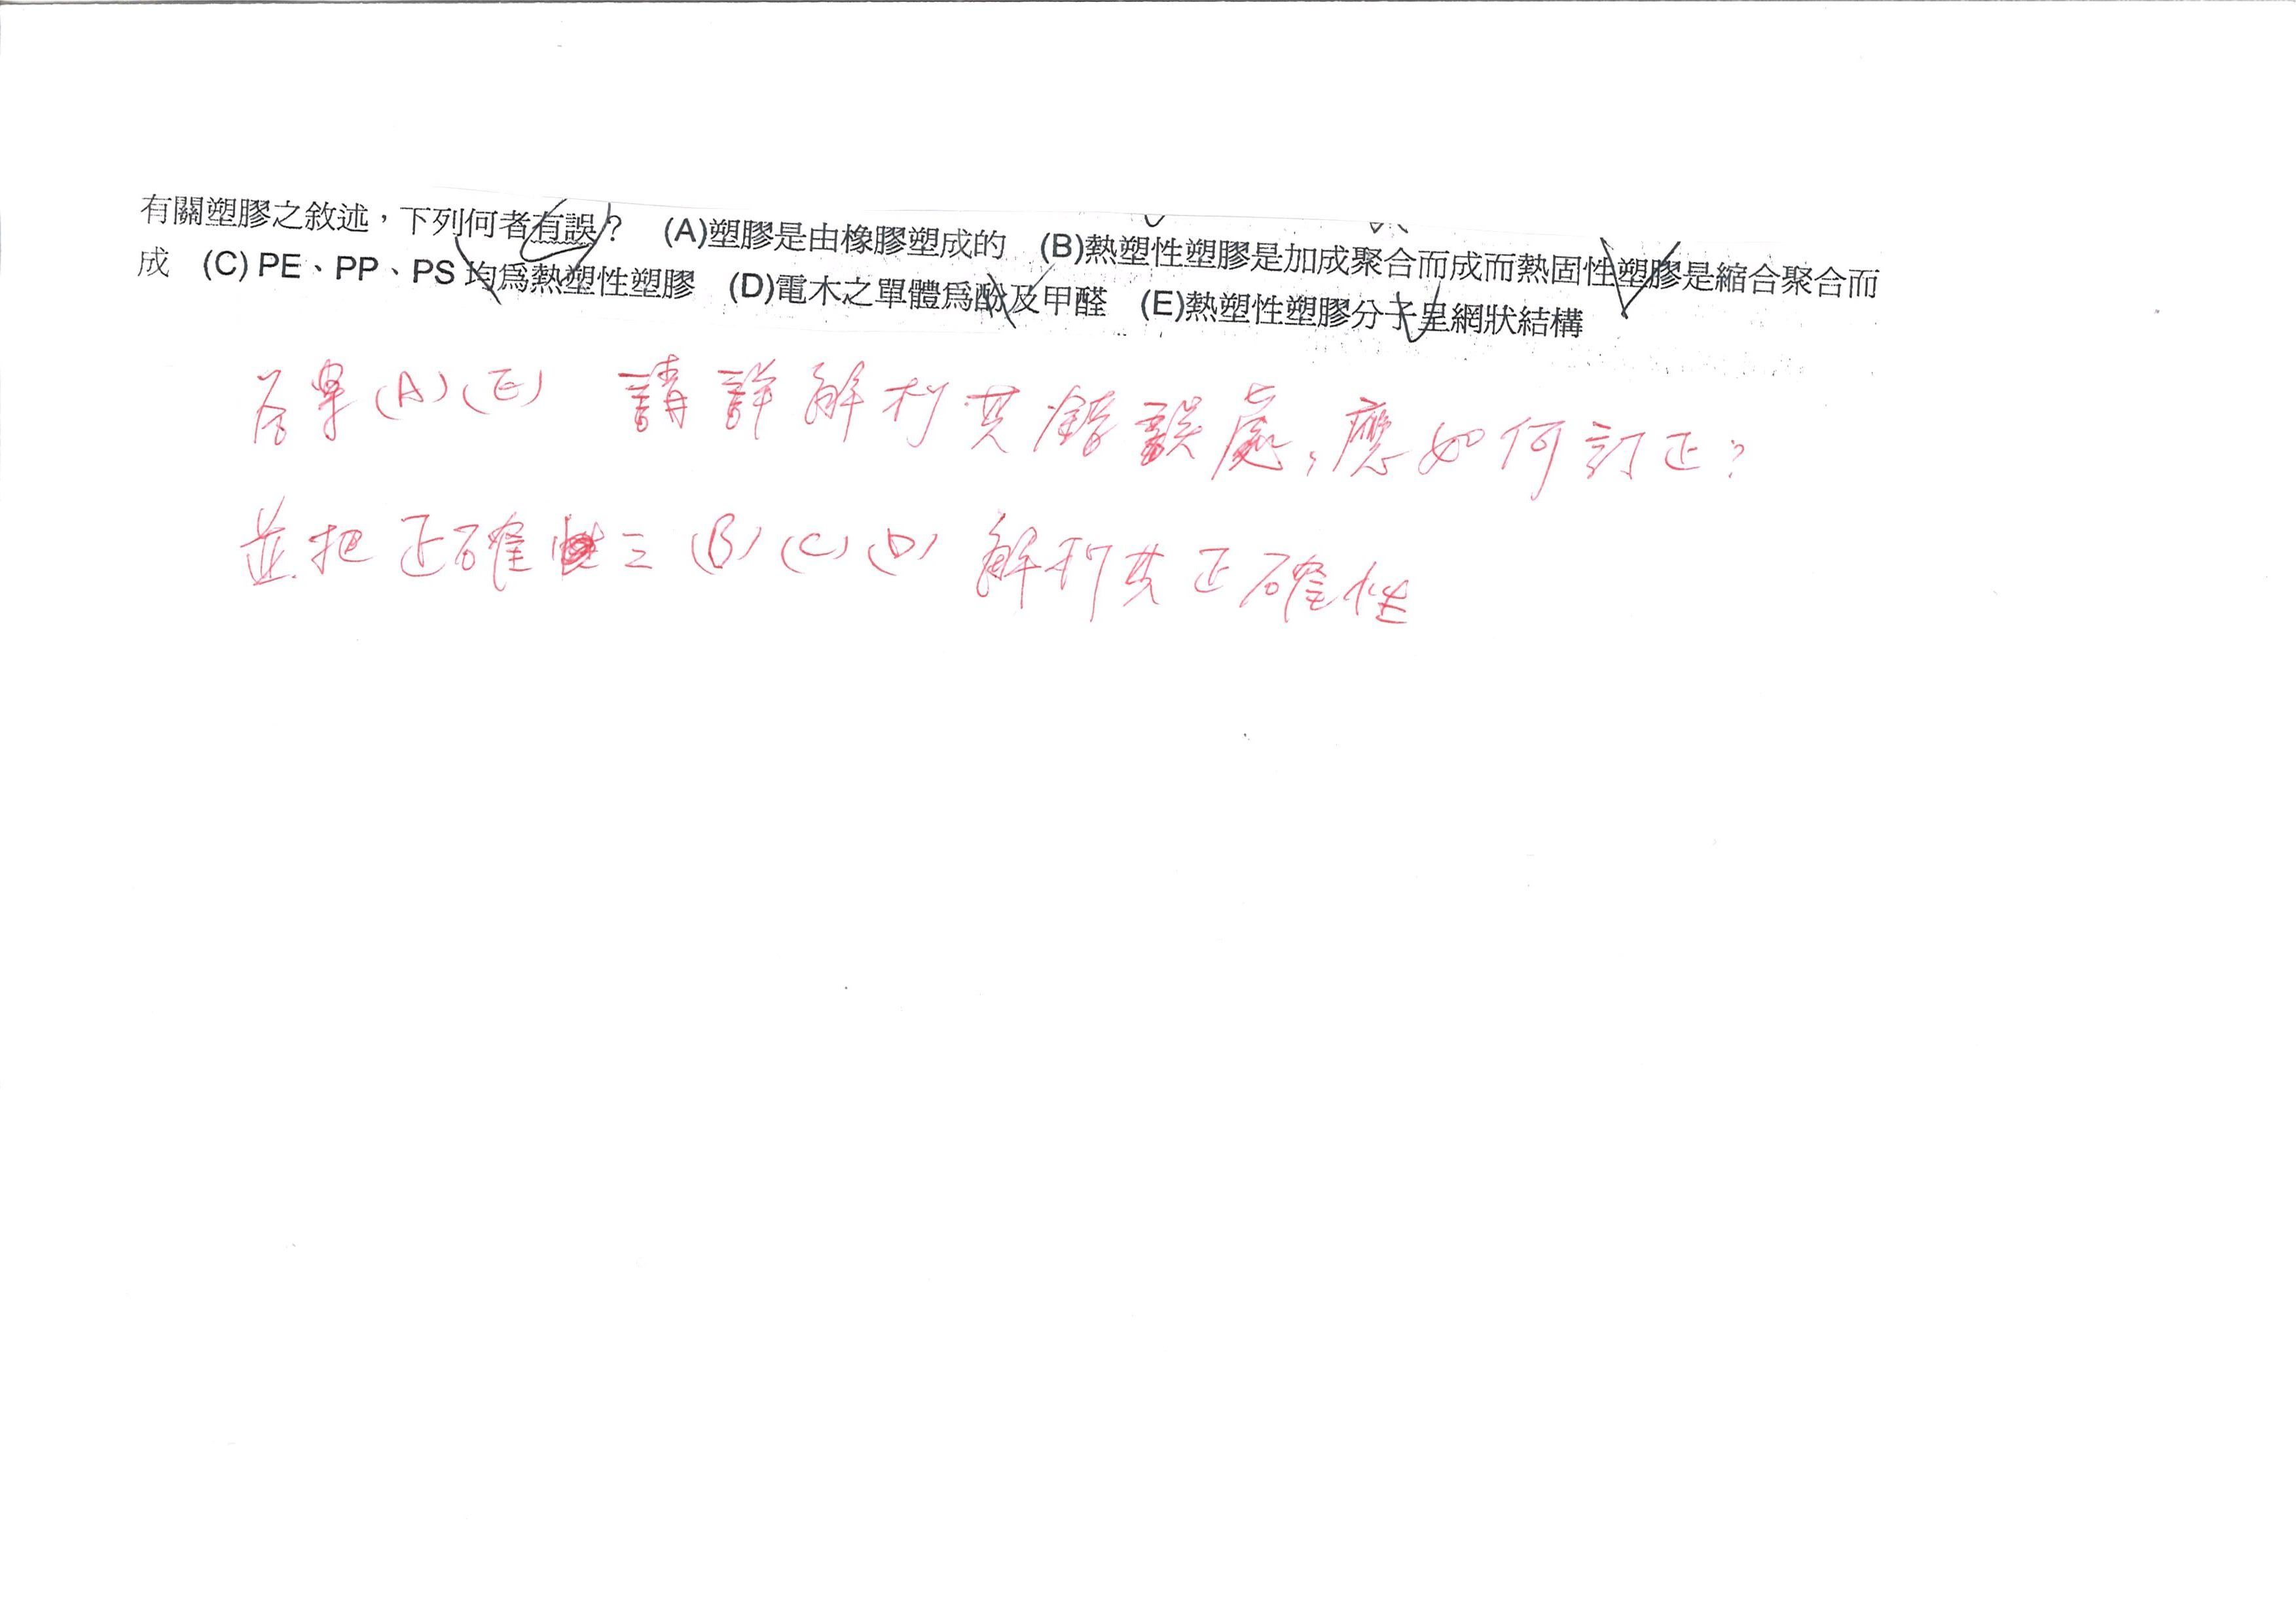 有關塑膠之敘述，下列何者有誤？　(A)塑膠是由橡膠塑成的　(B)熱塑性塑膠是加成聚合而成而熱固性塑膠是縮合聚合而
成　(C) PE、PP、PS 均為熱塑性塑膠　(D)電木之單體為酚及甲醛　(E)熱塑性塑膠分子呈網狀結構
答案(A)(E) 請詳解析其錯誤處，應如何訂正？
並把正確 三 (B)(C)(D) 解析其正確性